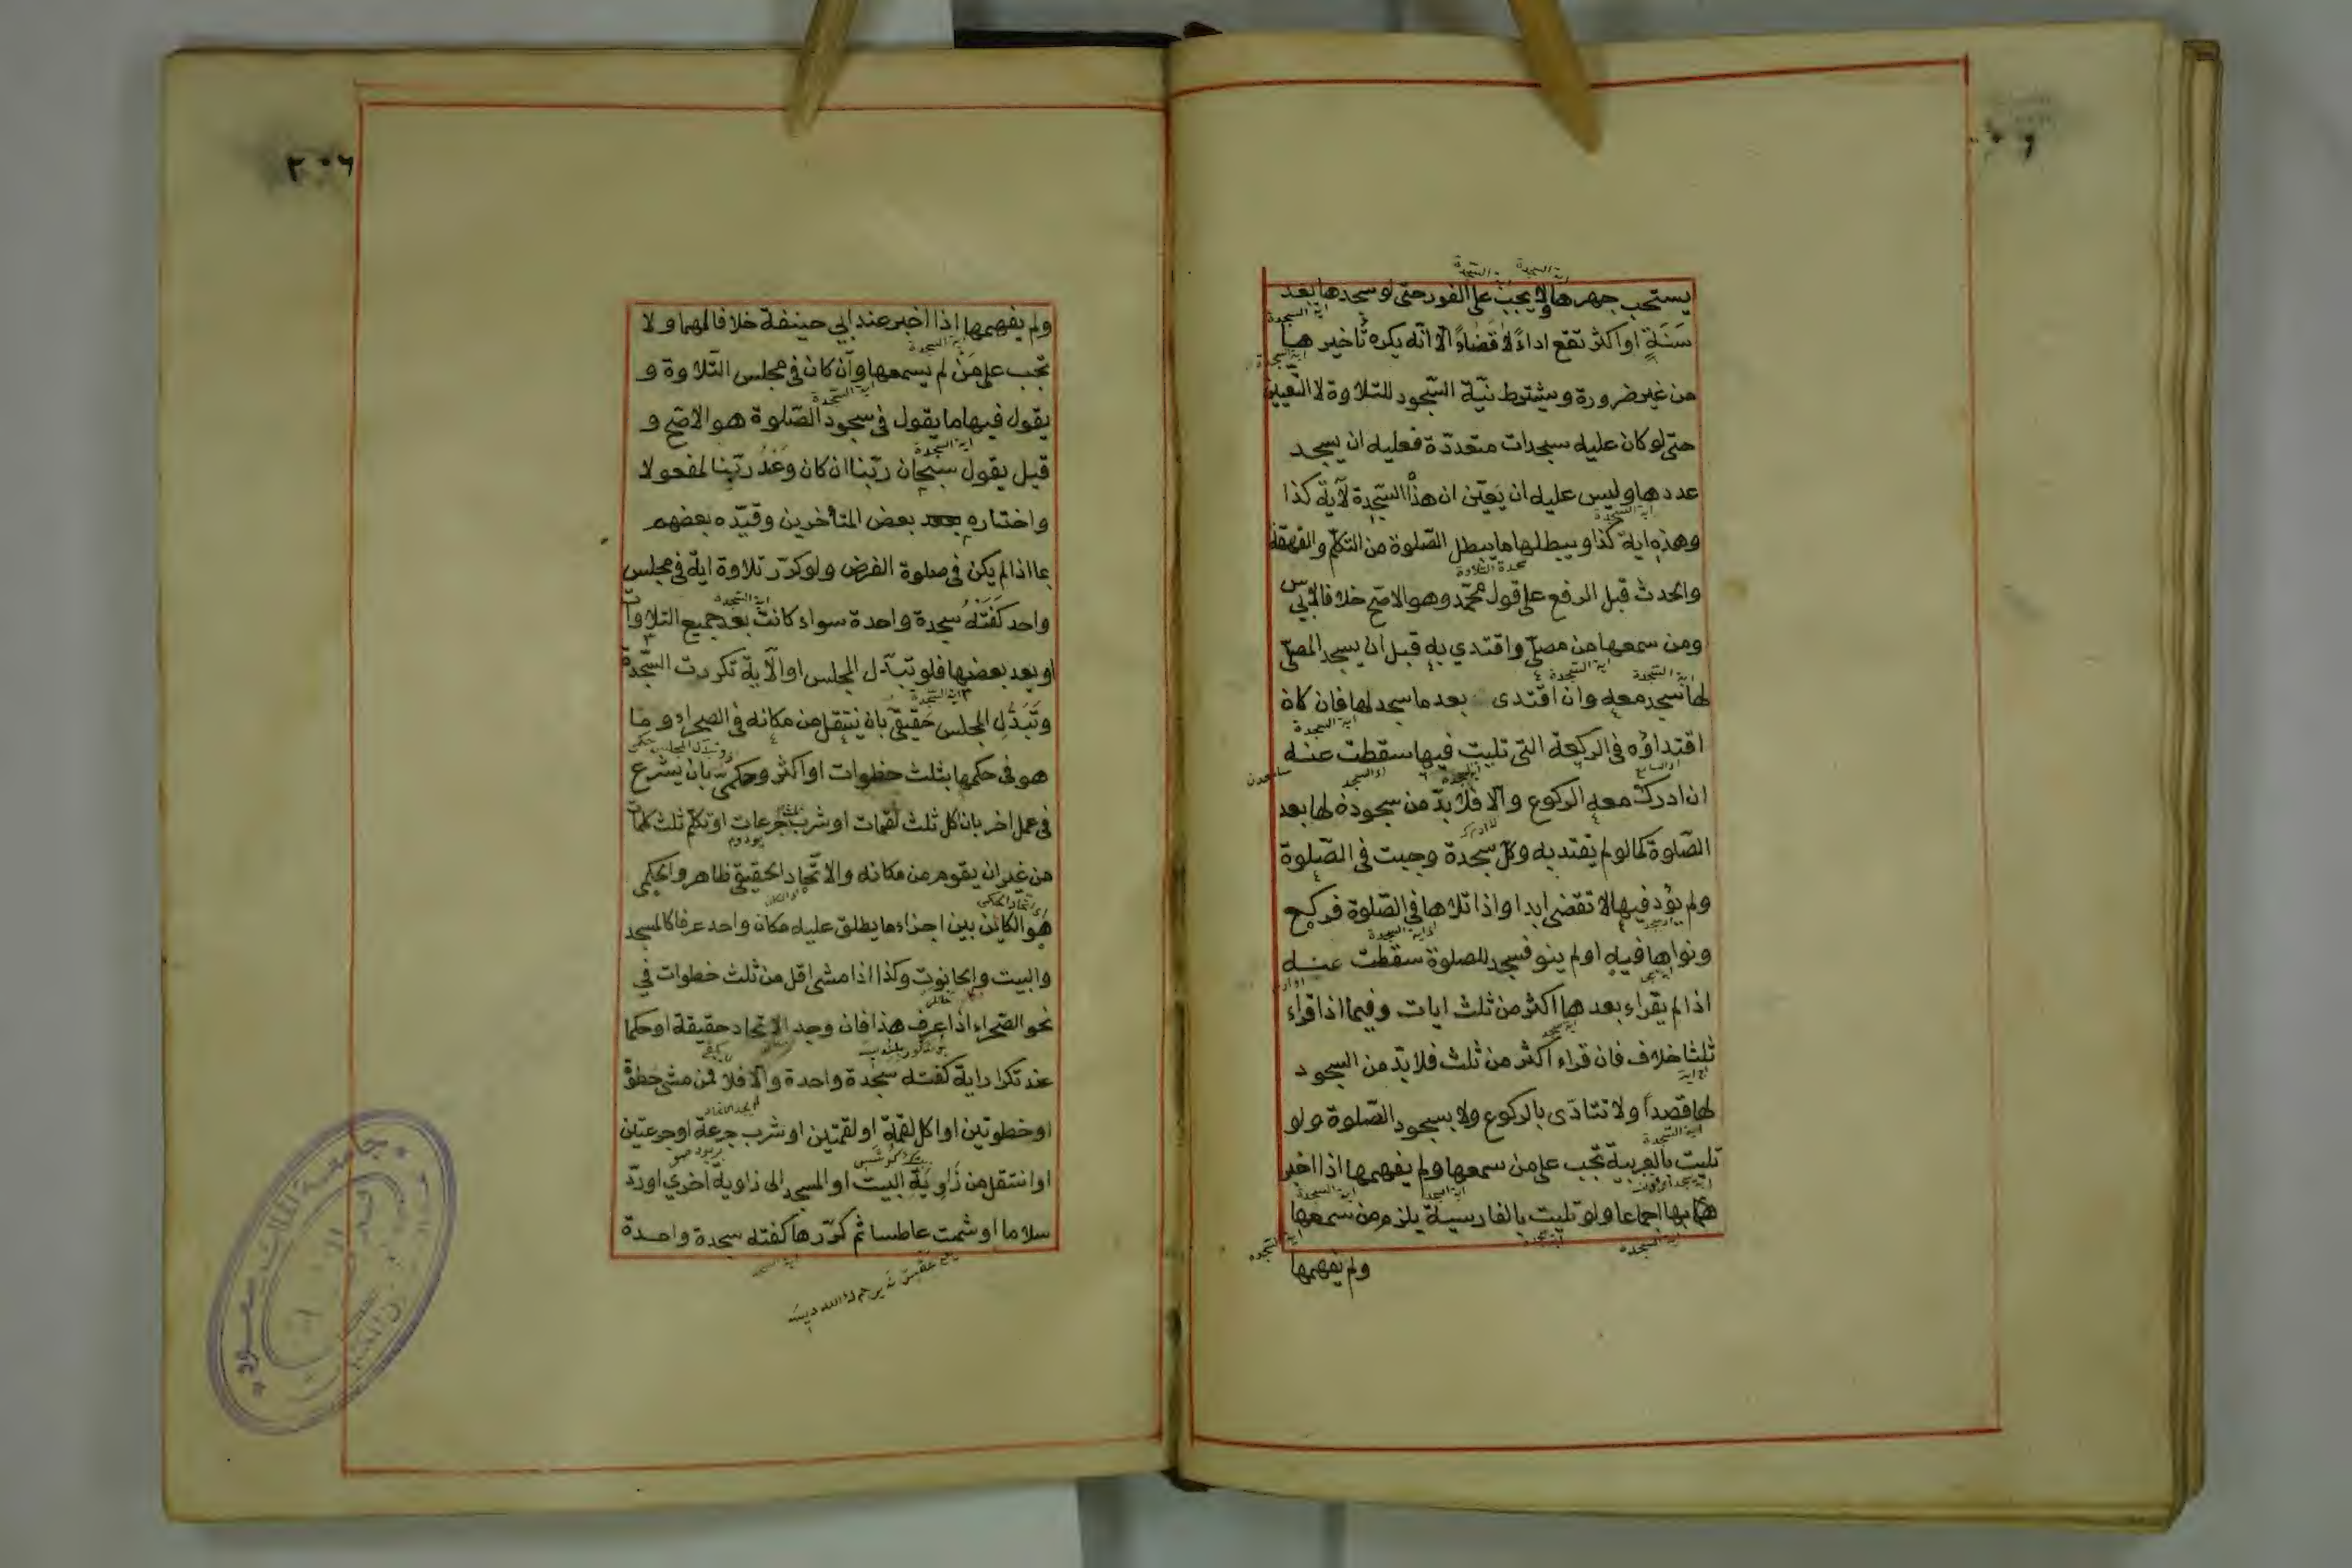 يستحب جهرها ولا يجب على الفور حتى لو سجدها بعد
سَنَةٍ او اكثر تقع اداءً لا قضاءً الّا انّه يكره تأخيرها
من غير ضرورة ويشترط نيّة السّجود للتلاوة لا التّعيين
حتى لو كان عليه سجدات متعدّدة فعليه ان يسجد
عددها وليس عليه ان يَعيّن ان هذه السّجدة لآية كذا
وهذه اية كذا ويبطلها ما يبطل الصّلوة من التكلّم والقهقهة
والحدث قبل الرفع على قول محمّد وهو الاصحّ خلافا لابي س
ومن سمعها من مصلّ واقتدي به قبل ان يسجد المصلّي
لها سجد معه وان اقتدى بعد ما سجد لها فان كان
اقتداؤه في الركعة التى تليت فيها سقطت عنه
ان ادرك معه الركوع والّا فلا بدّ من سجوده لها بعد
الصّلوة كما لو لم يقتد به وكلّ سجدة وجبت في الصّلوة
ولم يؤد فيها لا تقضى ابدا واذا تلاها في الصّلوة فركع
ونواها فيه او لم ينو فسجد للصلوة سقطت عنه
اذا لم يقراء بعدها اكثر من ثلث ايات وفيما اذا قراء
ثلثا خلاف فان قراء اكثر من ثلث فلا بدّ من السجود
لها قصداً ولا تتادّى بالركوع ولا بسجود الصّلوة ولو
تليت بالعربية تجب على من سمعها ولم يفهمها اذا اخبر
بها اجماعا ولو تليت بالفارسية يلزم من سمعها
ولم يفهمها
٢٠٦
ولم يفهمها اذا اخبر عند ابي حنيفة خلافا لهما ولا
تجب على مَنْ لم يسمعها وان كان في مجلس التّلاوة و
يقول فيها ما يقول في سجود الصّلوة هو الاصحّ و
قيل يقول سبحان ربّنا ان كان وَعْدُ ربّنا لمفعولا
واختاره بعض المتأخرين وقيّده بعضهم
بما اذا لم يكن في صلوة الفرض ولو كرّر تلاوة اية في مجلس
واحد كَفَتْهُ سجدة واحدة سواء كانت بعد جميع التلاوات
او بعد بعضها فلو تبدّل المجلس او الآية تكررت السّجدة
وتَبَدُّلِ المجلس حَقيقىّ بان ينتقل من مكانه في الصحراء وما
هو في حكمها بثلث خطوات او اكثر وحكمىّ بان يشرع
في عمل اخر بان اكل ثلث لقمات او شرب ثلث جرعات او تكلّم ثلث كلمات
من غير ان يقوم من مكانه والاتّحاد الحقيقيّ ظاهر والحكمى
هو الكائن بين اجزاء ما يطلق عليه مكان واحد عرفا كالمسجد
والبيت والحانوت وكذا اذا مشى اقل من ثلث خطوات في
نحو الصّحراء اذا عرف هذا فان وجد الاتحاد حقيقة او حكما
عند تكرار اية كفته سجدة واحدة والّا فلا فمن مشى خطوة
او خطوتين او اكل لقمة او لقمتين او شرب جرعة او جرعتين
او انتقل من زَاوِيَةِ البيت او المسجد الى زاوية اخري او ردّ
سلاما او شمت عاطسا ثم كرّرها كفته سجدة واحدة